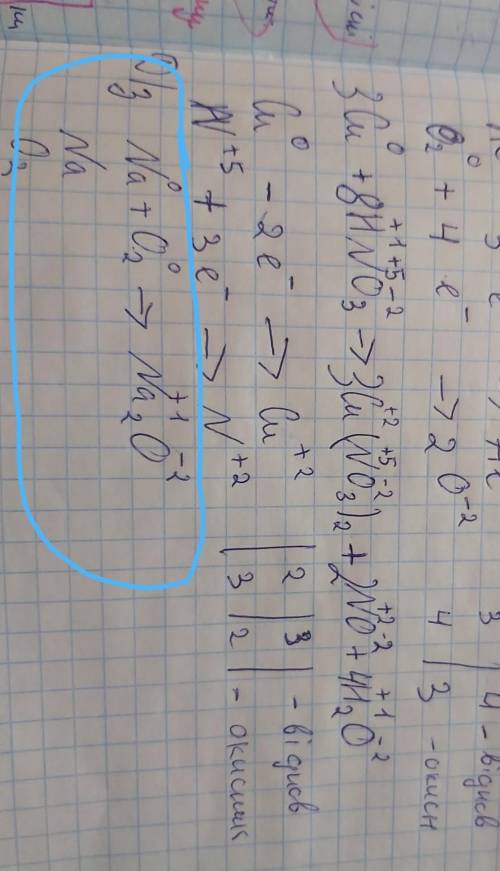 O₂⁰ + 4 e⁻ → 2 O⁻² 4 | 3 - окисн
3Cu⁰ + 8H⁺¹N⁺⁵O₃⁻² → 3Cu⁺²(N⁺⁵O₃⁻²)₂ + 2N⁺²O⁻² + 4H₂⁺¹O⁻²
Cu⁰ - 2e⁻ → Cu⁺² | 2 | 3 | - віднов
N⁺⁵ + 3e⁻ → N⁺² | 3 | 2 | - окисник
Na⁰ + O₂⁰ → Na₂⁺¹O⁻²
Na
O₂